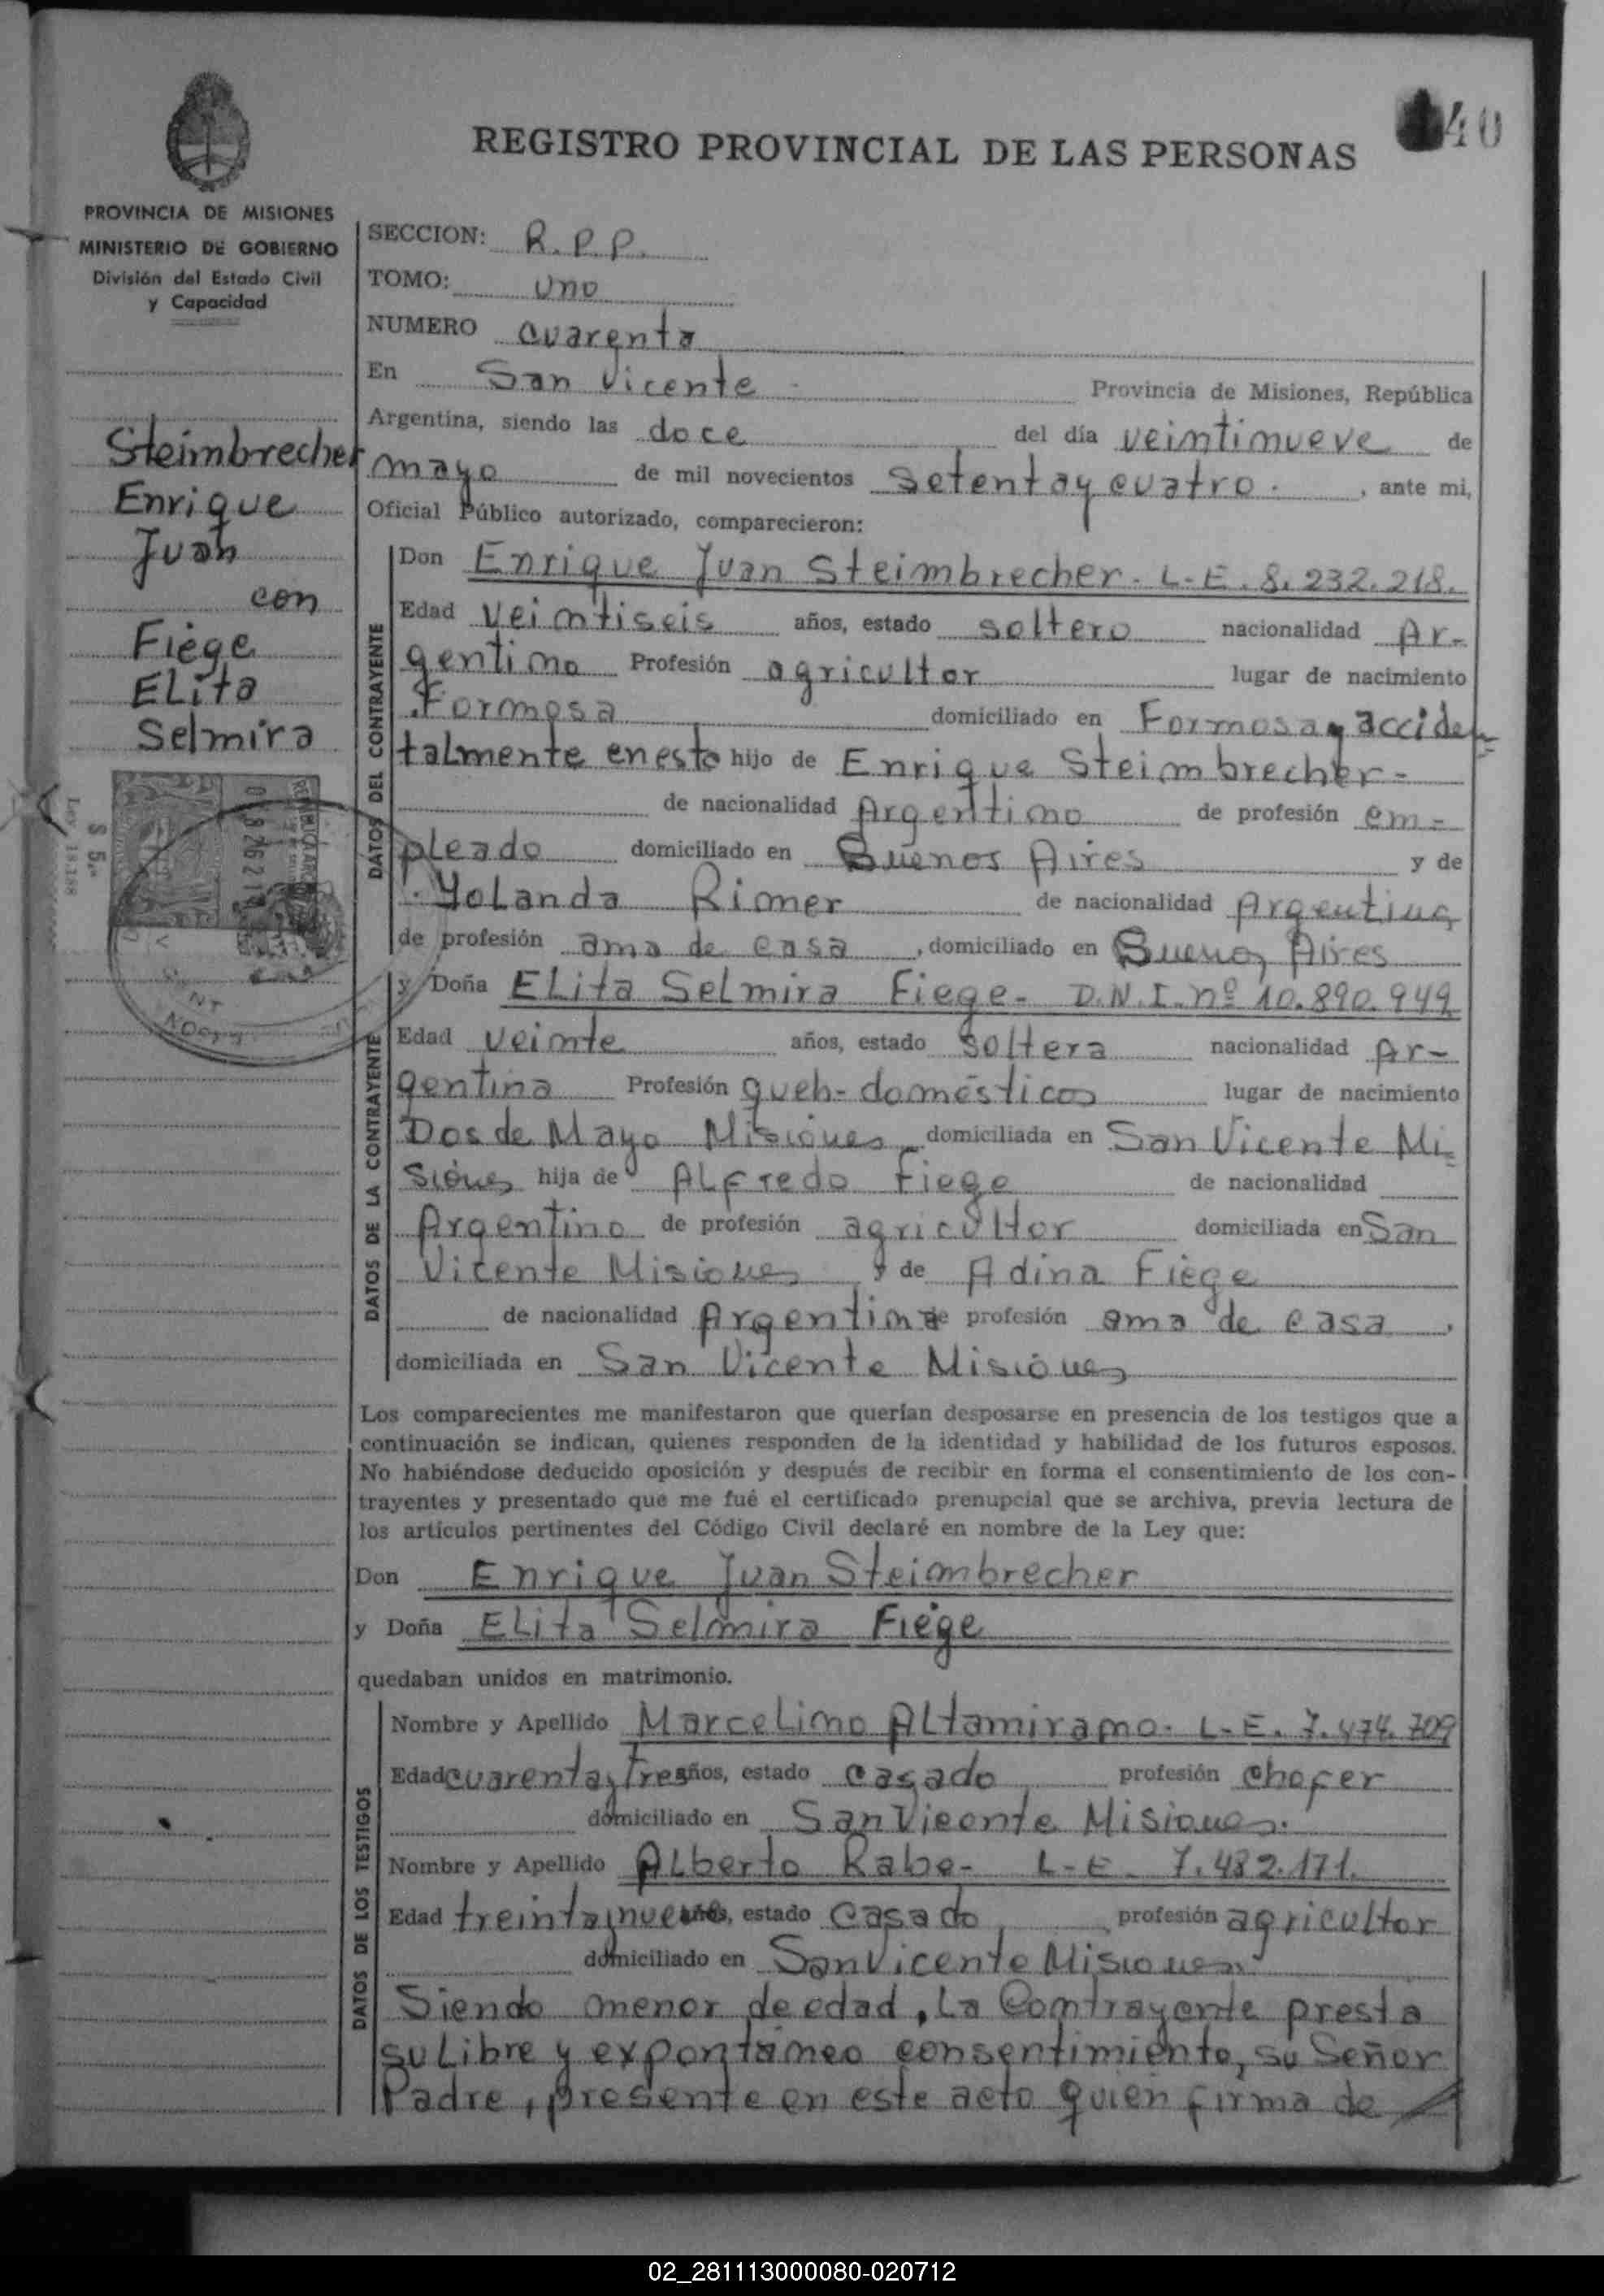 40
REGISTRO PROVINCIAL DE LAS PERSONAS
PROVINCIA DE MISIONES
MINISTERIO DE GOBIERNO
División del Estado Civil
y Capacidad
Steimbrecher
Enrique
Juan
con
Fiege
ELita
Selmira
Ley 18.188
SECCION: R.P.P.
TOMO: uno
NUMERO cuarenta
En San Vicente Provincia de Misiones, República
Argentina, siendo las doce del día veintinueve de
mayo de mil novecientos setenta y cuatro. , ante mi,
Oficial Público autorizado, comparecieron:
DATOS DEL CONTRAYENTE
Don Enrique Juan Steimbrecher. L.E. 8.232.218.
Edad veintiseis años, estado soltero nacionalidad Ar-
gentino Profesión agricultor lugar de nacimiento
Formosa domiciliado en Formosa y acciden
talmente en esta hijo de Enrique Steimbrecher-
de nacionalidad Argentino de profesión em-
pleado domiciliado en Buenos Aires y de
Yolanda Rimer de nacionalidad Argentina
de profesión ama de casa , domiciliado en Buenos Aires
DATOS DE LA CONTRAYENTE
y Doña ELita Selmira Fiege- D.N.I. nº 10.890.949
Edad veinte años, estado soltera nacionalidad Ar-
gentina Profesión queh-domésticos lugar de nacimiento
Dos de Mayo Misiones domiciliada en San Vicente Mi-
siones hija de ALfredo Fiege de nacionalidad
Argentino de profesión agricultor domiciliada en San
Vicente Misiones y de Adina Fiege
de nacionalidad Argentina de profesión ama de casa ,
domiciliada en San Vicente Misiones
Los comparecientes me manifestaron que querían desposarse en presencia de los testigos que a
continuación se indican, quienes responden de la identidad y habilidad de los futuros esposos.
No habiéndose deducido oposición y después de recibir en forma el consentimiento de los con-
trayentes y presentado que me fué el certificado prenupcial que se archiva, previa lectura de
los artículos pertinentes del Código Civil declaré en nombre de la Ley que:
Don Enrique Juan Steimbrecher
y Doña ELita Selmira Fiege
quedaban unidos en matrimonio.
DATOS DE LOS TESTIGOS
Nombre y Apellido Marcelino ALtamirano. L.E. 7.474.709
Edad cuarenta y tres años, estado casado profesión chofer
domiciliado en San Vicente Misiones.
Nombre y Apellido ALberto Rabe- L-E- 7.482.171.
Edad treinta y nueve años, estado casado profesión agricultor
domiciliado en San Vicente Misiones
Siendo menor de edad, La Contrayente presta
su Libre y expontáneo consentimiento, su Señor
Padre, presente en este acto quien firma de
02_281113000080-020712